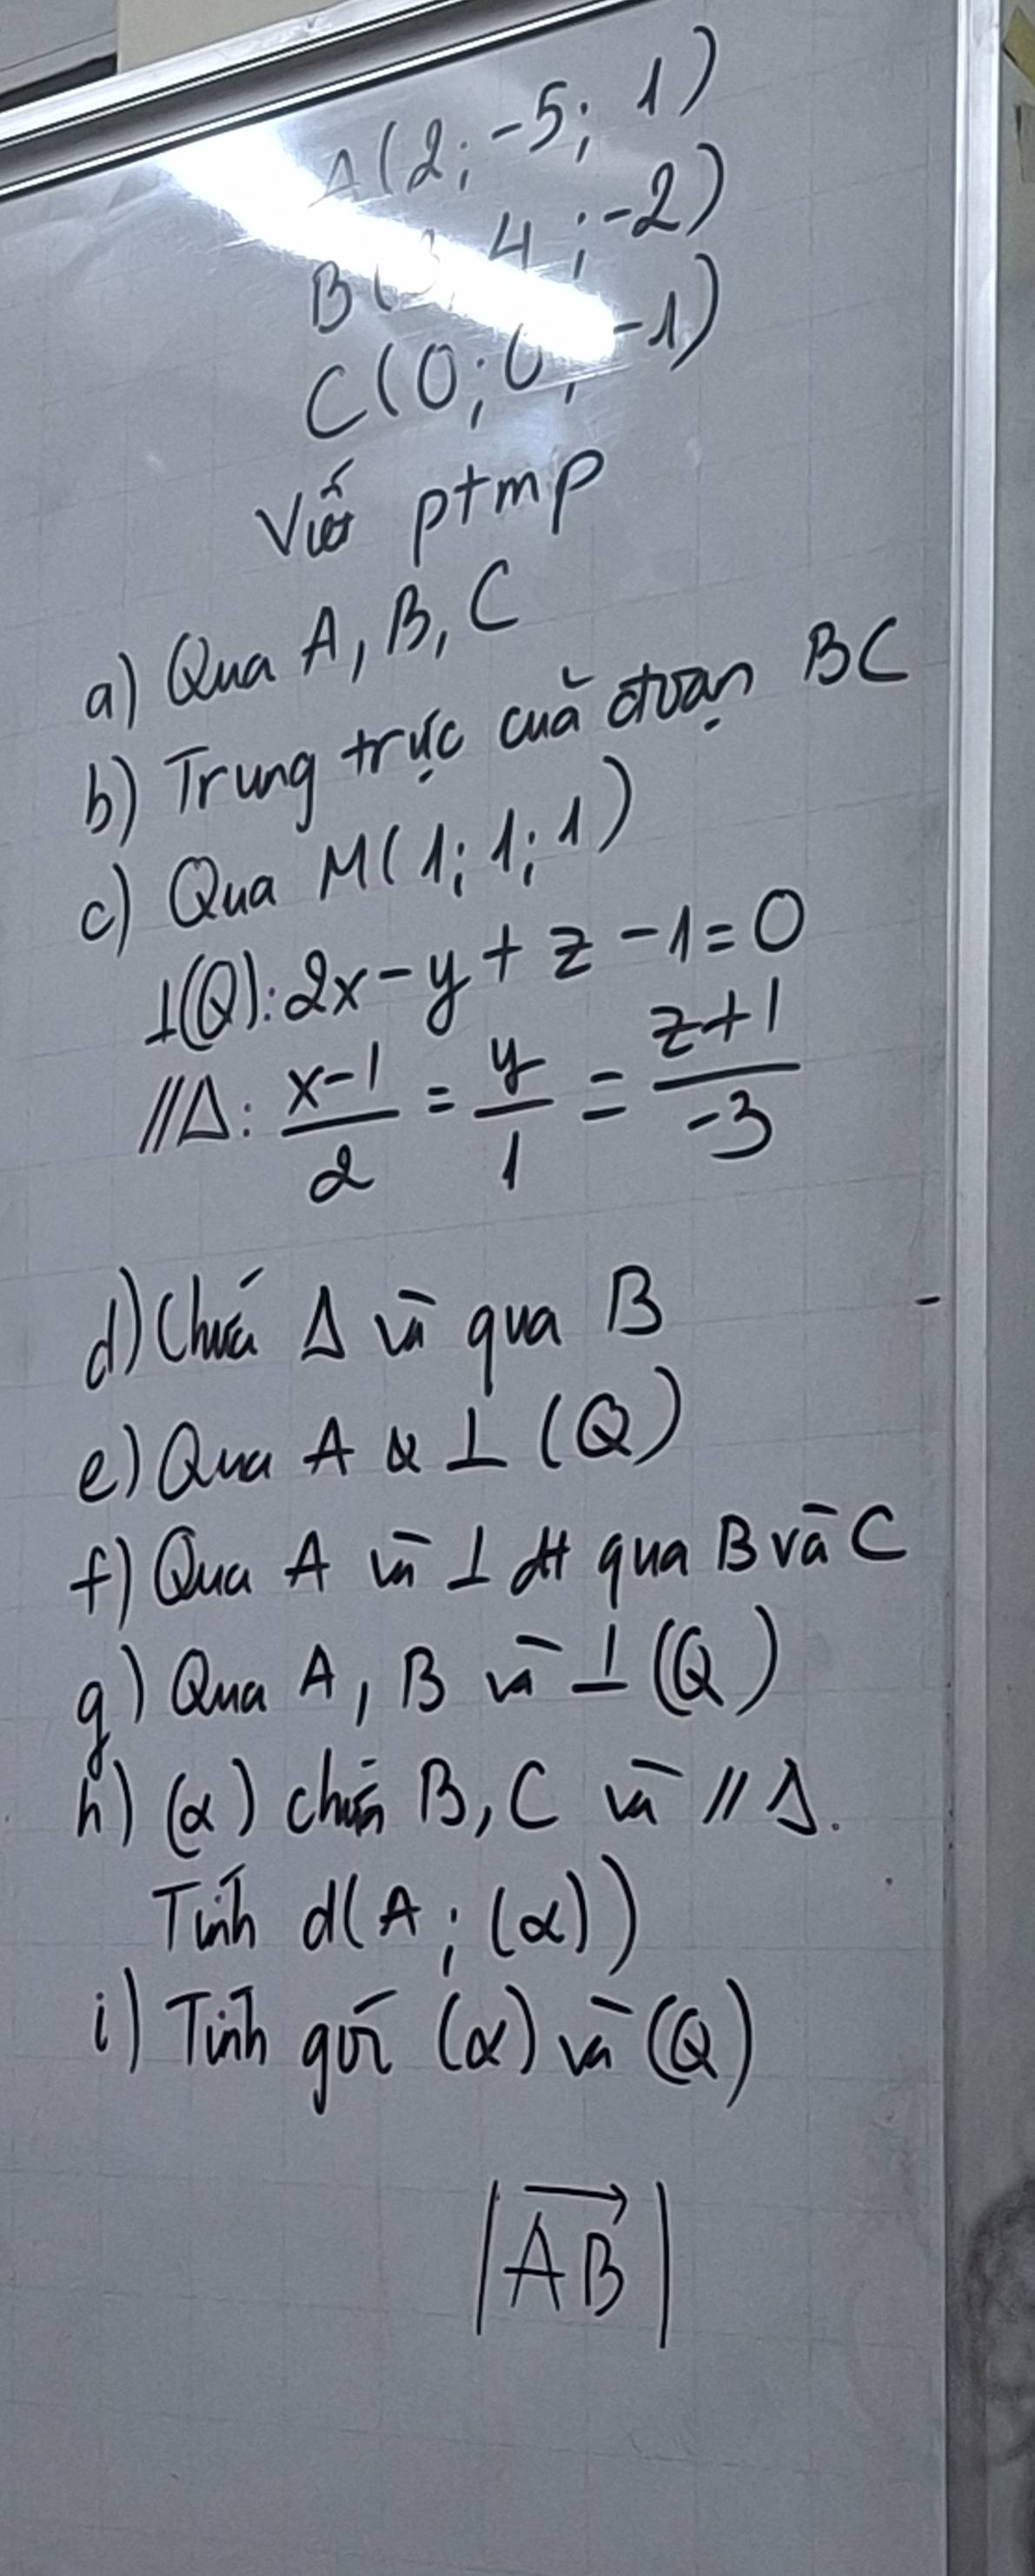 A(2; -5; 1)
B(3; 4; -2)
C(0; 0; -1)
Viết ptmp
a) Qua A, B, C
b) Trung trực của đoạn BC
c) Qua M(1; 1; 1)
⊥(Q): 2x - y + z - 1 = 0
//Δ: (x-1)/2 = y/1 = (z+1)/-3
d) Chứa Δ và qua B
e) Qua A & ⊥ (Q)
f) Qua A và ⊥ đt qua B và C
g) Qua A, B và ⊥ (Q)
h) (α) chứa B, C và // Δ.
Tính d(A; (α))
i) Tính góc (α) và (Q)
|$\overrightarrow{AB}$|